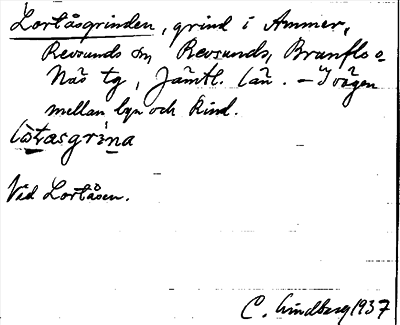 Lortåsgrinden, grind i Ammer,
Revsunds sn Revsunds, Brunflo o.
Näs tg, Jämtl. län. – I vägen
mellan byn och Kind.
Lo̱tasgri̱na
Vid Lortåsen.
C. Lindberg 1937